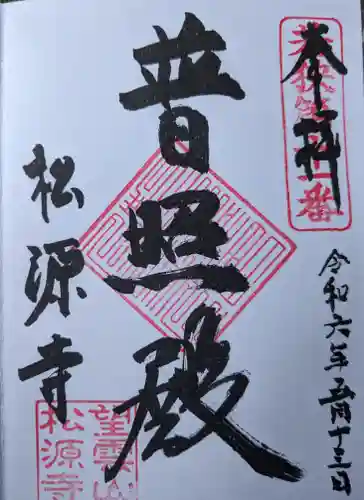 奉拝
令和六年五月十三日
普照殿
松源寺
望雲山
松源寺